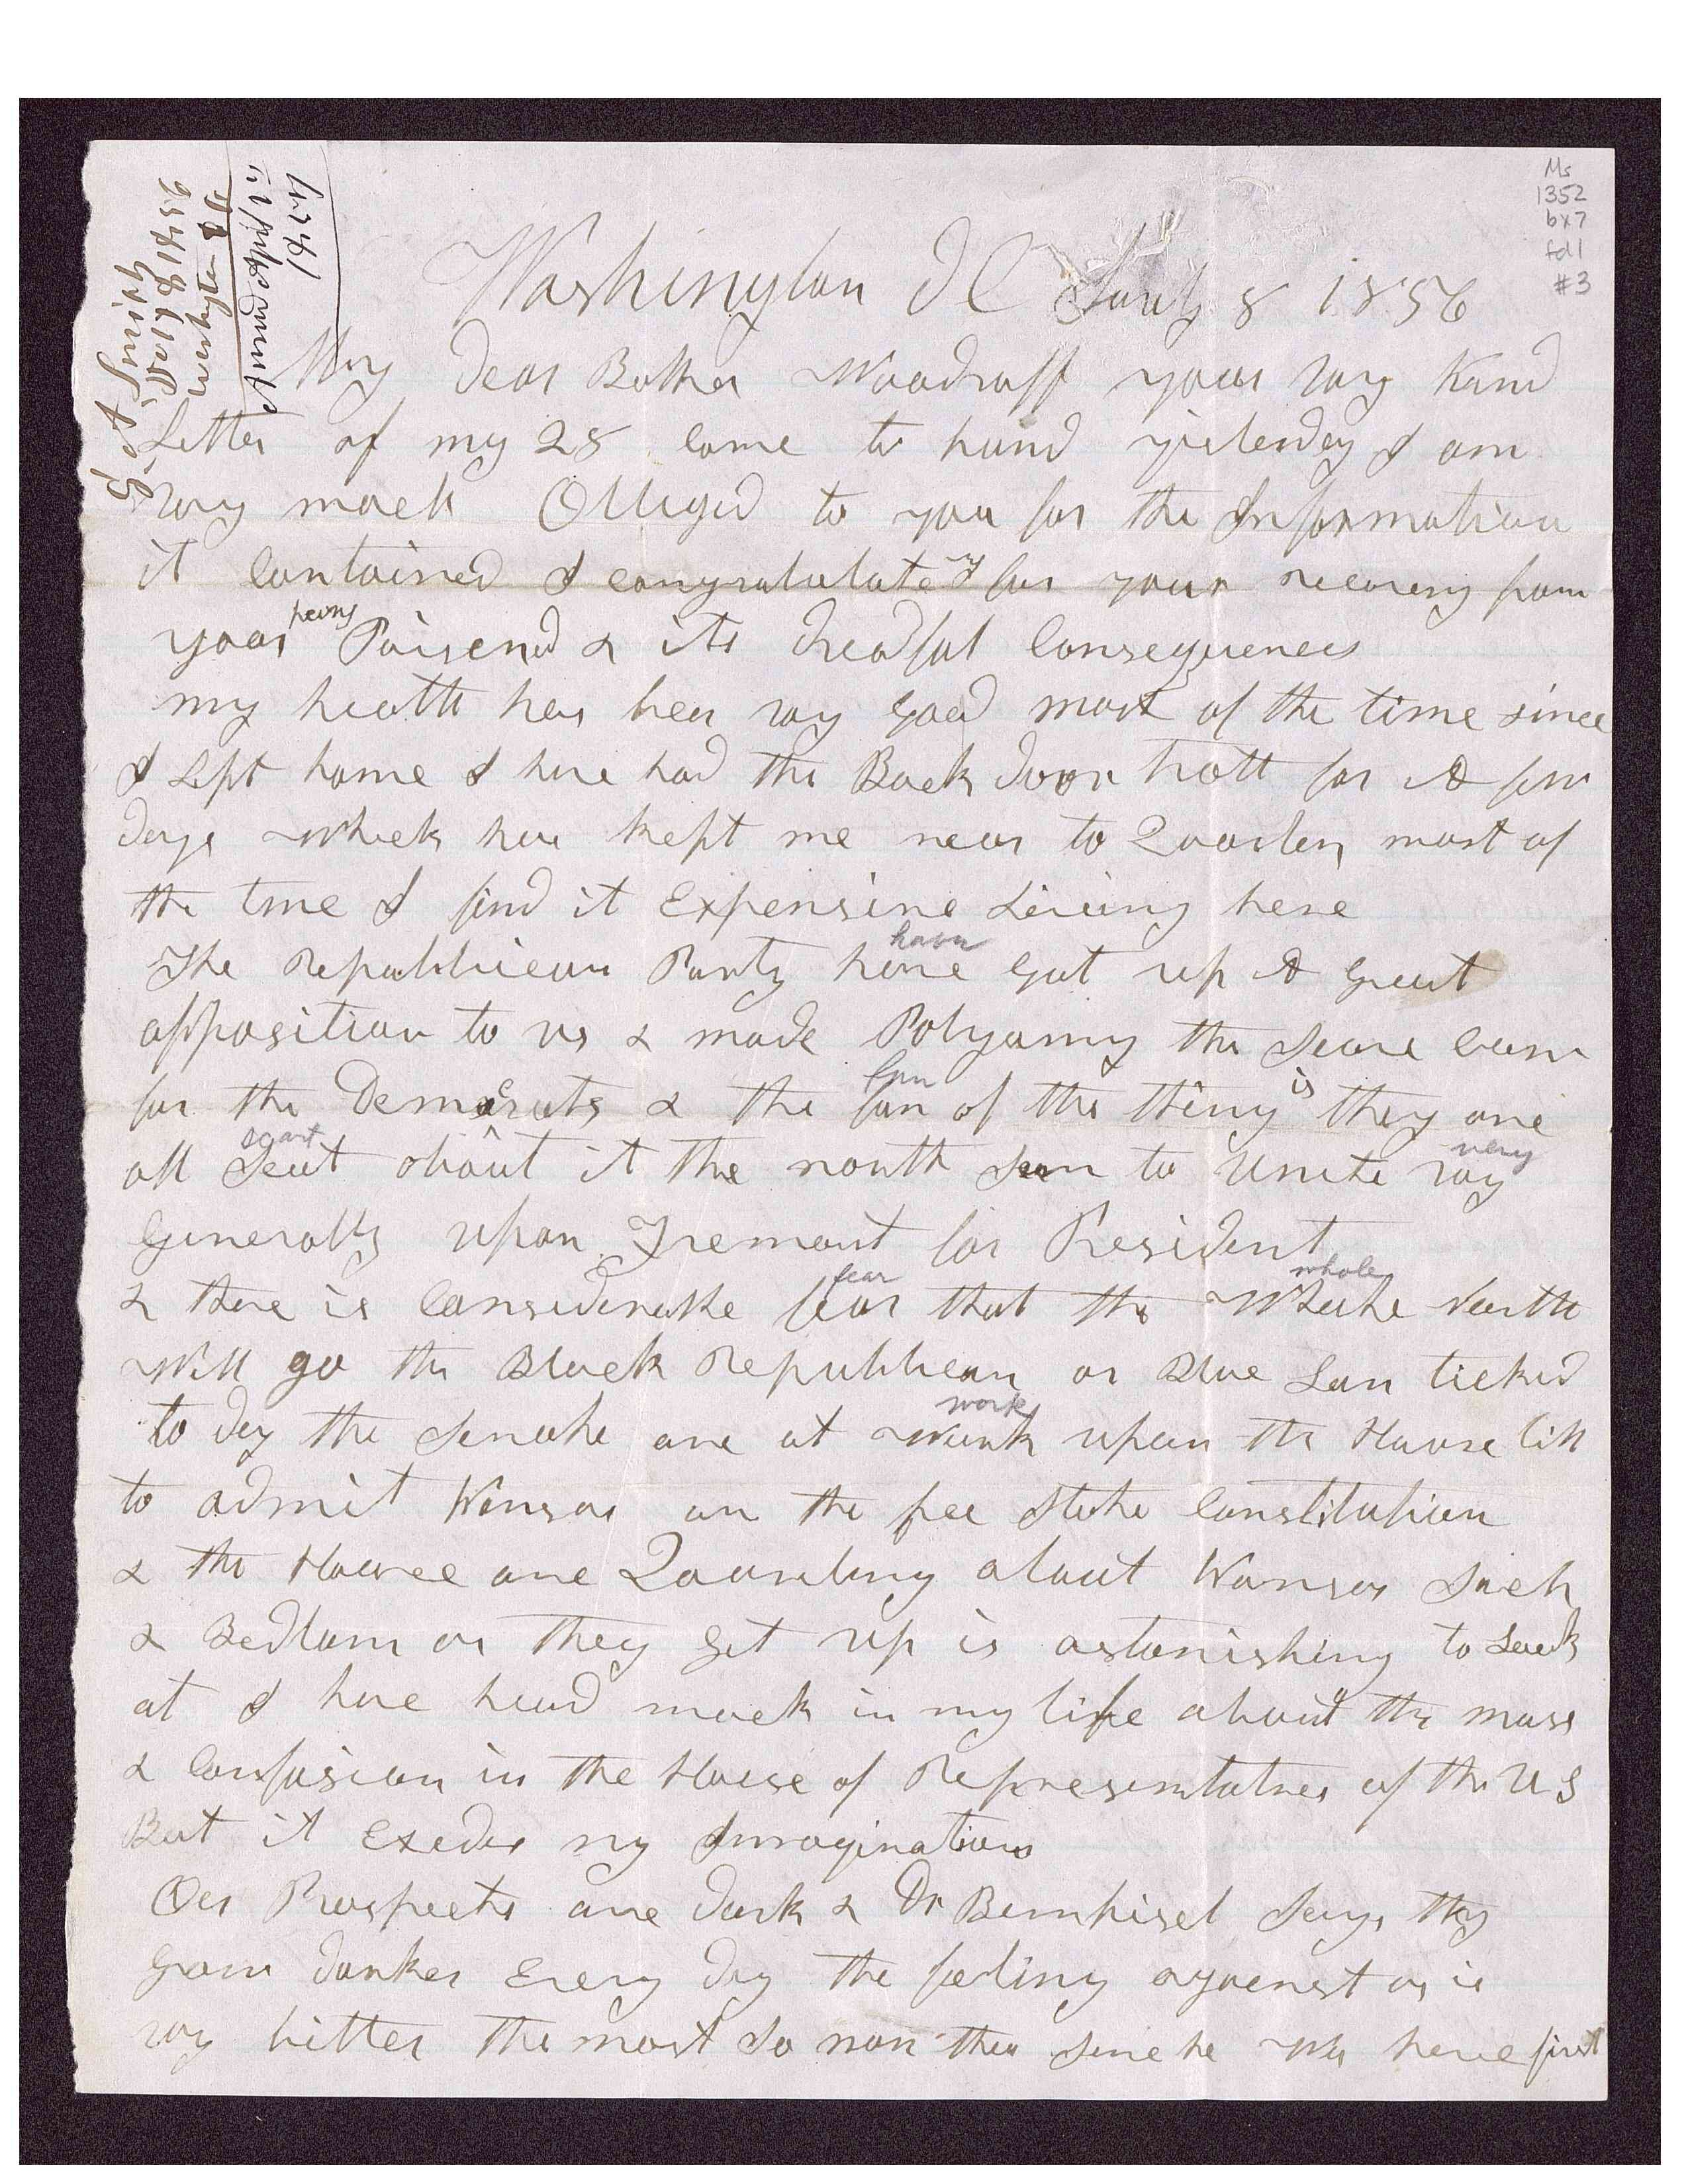 Ms
1352
bx7
fd 1
#3
G. A. Smith
July 8 1856
Washington
Answered April 1st
1857
Washington DC July 8 1856
My Dear Brother Woodruff your vary kind
Letter of may 28 came to hand yesterday I am
vary much Obliged to you for the Information
it contained I congratulate y for your recovery from
your being Poisened & its dreadful Consequences
my health has been vary good most of the time since
I Left home I have had the Back door trott for A few
days which have kept me near to Quarters most of
the time I find it Expensive Living here
The Republican Party have have Got up A Great
opposition to us & made Polygamy the Scare Crow
for the Democrats & the fun fun of the thing is they are
all Scart scart about it the north Seem to Unite vary very
Generally upon Fremont for President
& there is Considerable fear fear that the Whole whole North
Will go the Black Republican or Blue Law ticked
to day the Senate are at Work work upon the House bill
to admit Kansas on the free State Constitution
& the House are Quareling about Kansas Such
& Bedlam as they get up is astonishing to Look
at I have heard much in my life about the muss
& Confusion in the House of Representatives of the U S
But it Exedes my Imagination
Our Prospects are dark & Dr Bernhisel Says they
Grow darker Every day the feeling against us is
vary bitter the most So now then Sence he was here first